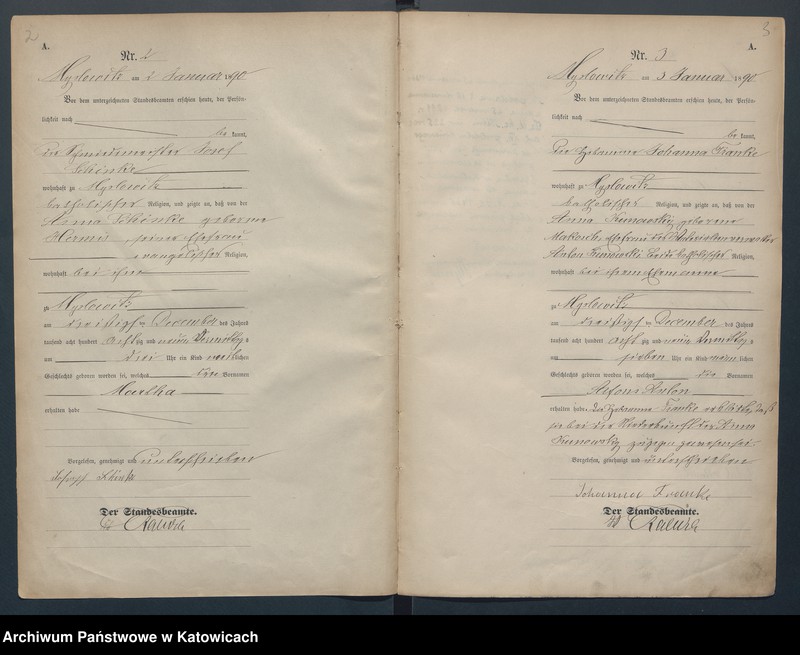 2
A.
Nr. 2
Myslowitz am 2 Januar 1890
Vor dem unterzeichneten Standesbeamten erschien heute, der Persön-
lichkeit nach
be kannt,
der Schmiedemeister Josef
Schinke
wohnhaft zu Myslowitz
katholischer Religion, und zeigte an, daß von der
Anna Schinke geborene
seiner Ehefrau
evangelischer Religion,
wohnhaft bei ihm
zu Myslowitz
am dreißigsten December des Jahres
tausend acht hundert achtzig und neun Vormittags
um drei Uhr ein Kind weiblichen
Geschlechts geboren worden sei, welches den Vornamen
Martha
erhalten habe
Vorgelesen, genehmigt und unterschrieben
Josef Schinke
Der Standesbeamte.
3
A.
Nr. 3
Myslowitz am 3 Januar 1890
Vor dem unterzeichneten Standesbeamten erschien heute, der Persön-
lichkeit nach
be kannt,
die Hebamme Johanna Franke
wohnhaft zu Myslowitz
katholischer Religion, und zeigte an, daß von der
Anna Kunowski geborene
Ehefrau des
Anton Kunowski beide katholischer Religion,
wohnhaft bei ihrem Ehemanne
zu Myslowitz
am dreißigsten December des Jahres
tausend acht hundert achtzig und neun Vormittags
um sieben Uhr ein Kind männlichen
Geschlechts geboren worden sei, welches die Vornamen
Alfons Anton
erhalten habe. Die Hebamme Franke erklärte, daß
sie bei der Niederkunft der Anna
Kunowski zugegen gewesen sei.
Vorgelesen, genehmigt und unterschrieben
Johanna Franke
Der Standesbeamte.
Archiwum Państwowe w Katowicach